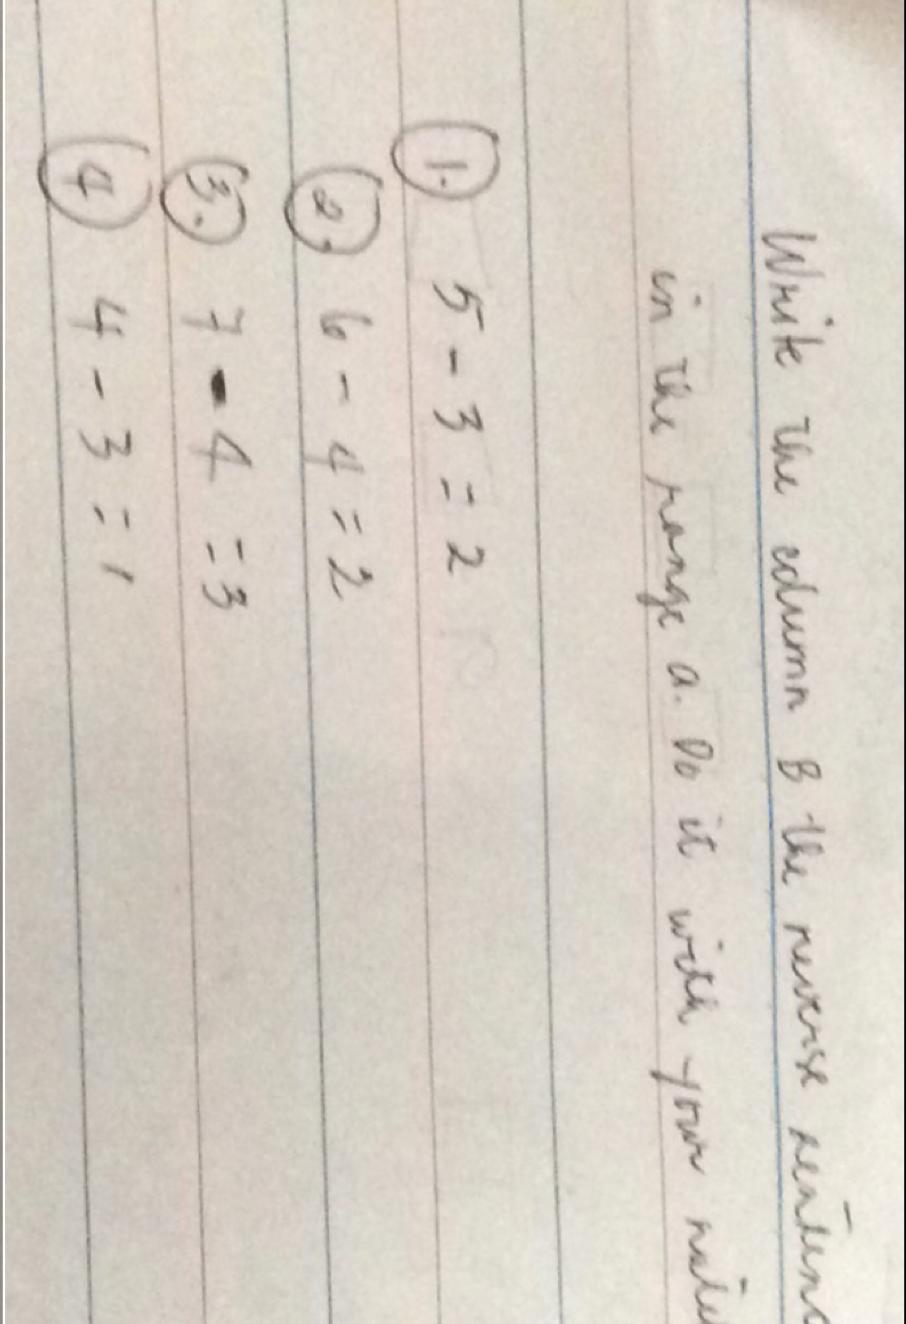 Write the column B the reverse
in the range a. Do it with your
1. 5 - 3 = 2
2. 6 - 4 = 2
3. 7 - 4 = 3
4 4 - 3 = 1